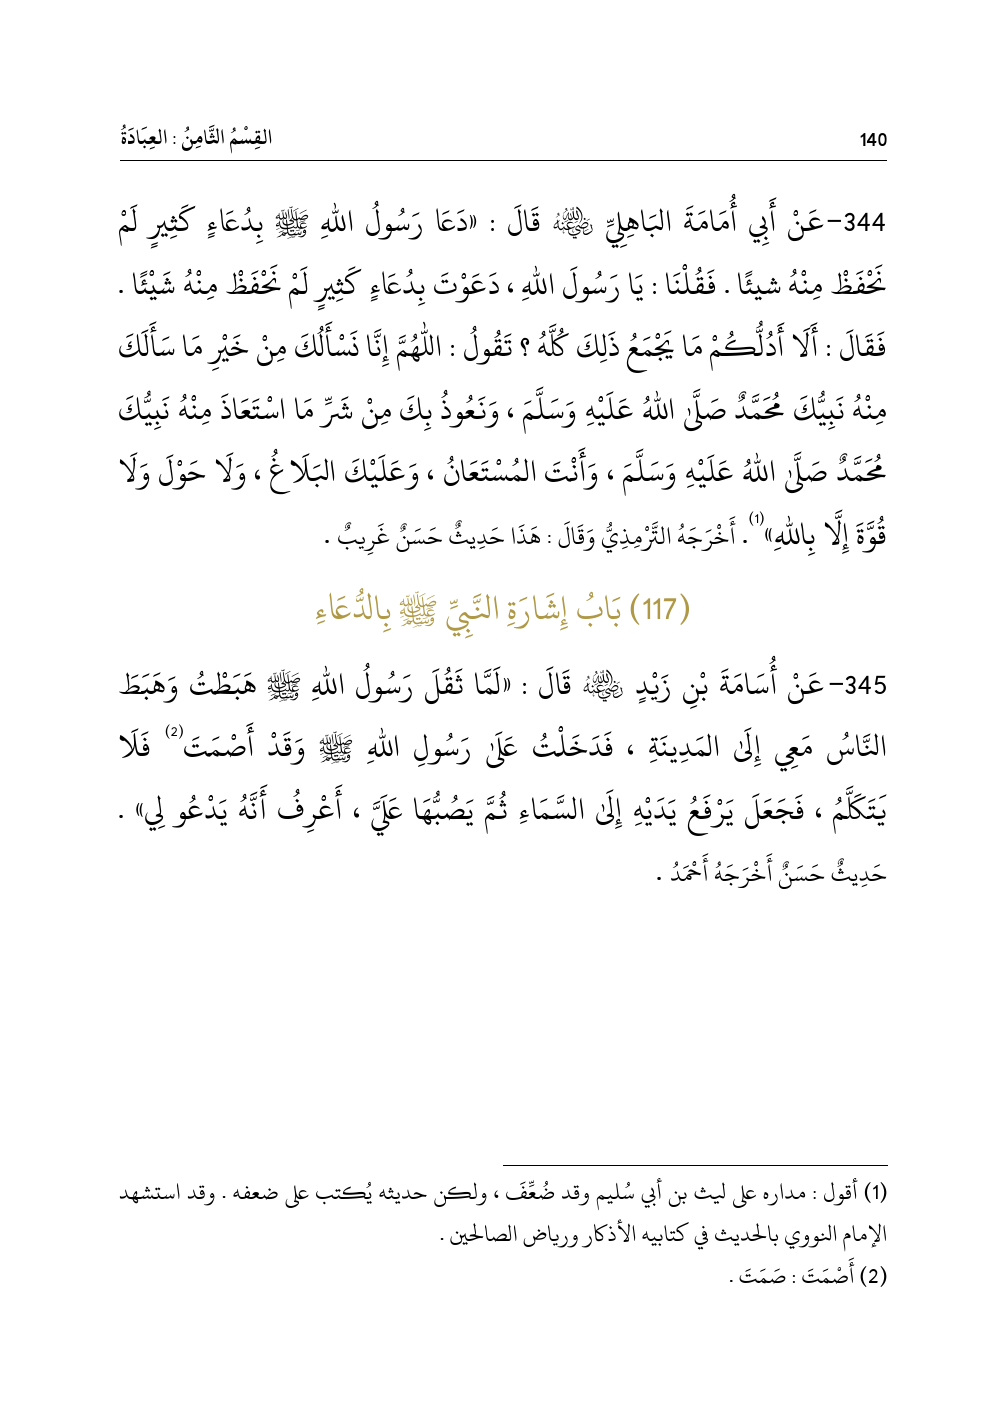 140
القِسْمُ الثَّامِنُ : العِبَادَةُ
344- عَنْ أَبِي أُمَامَةَ البَاهِلِيِّ ﵁ قَالَ : «دَعَا رَسُولُ اللهِ ﷺ بِدُعَاءٍ كَثِيرٍ لَمْ
نَحْفَظْ مِنْهُ شيئًا . فَقُلْنَا : يَا رَسُولَ اللهِ ، دَعَوْتَ بِدُعَاءٍ كَثِيرٍ لَمْ نَحْفَظْ مِنْهُ شَيْئًا .
فَقَالَ : أَلَا أَدُلُّكُمْ مَا يَجْمَعُ ذَلِكَ كُلَّهُ ؟ تَقُولُ : اللّٰهُمَّ إِنَّا نَسْأَلُكَ مِنْ خَيْرِ مَا سَأَلَكَ
مِنْهُ نَبِيُّكَ مُحَمَّدٌ صَلَّى اللهُ عَلَيْهِ وَسَلَّمَ ، وَنَعُوذُ بِكَ مِنْ شَرِّ مَا اسْتَعَاذَ مِنْهُ نَبِيُّكَ
مُحَمَّدٌ صَلَّى اللهُ عَلَيْهِ وَسَلَّمَ ، وَأَنْتَ المُسْتَعَانُ ، وَعَلَيْكَ البَلَاغُ ، وَلَا حَوْلَ وَلَا
قُوَّةَ إِلَّا بِاللهِ»(1). أَخْرَجَهُ التَّرْمِذِيُّ وَقَالَ : هَذَا حَدِيثٌ حَسَنٌ غَرِيبٌ .
(117) بَابُ إِشَارَةِ النَّبِيِّ ﷺ بِالدُّعَاءِ
345- عَنْ أُسَامَةَ بْنِ زَيْدٍ ﵁ قَالَ : «لَمَّا ثَقُلَ رَسُولُ اللهِ ﷺ هَبَطْتُ وَهَبَطَ
النَّاسُ مَعِي إِلَى المَدِينَةِ ، فَدَخَلْتُ عَلَى رَسُولِ اللهِ ﷺ وَقَدْ أَصْمَتَ(2) فَلَا
يَتَكَلَّمُ ، فَجَعَلَ يَرْفَعُ يَدَيْهِ إِلَى السَّمَاءِ ثُمَّ يَصُبُّهَا عَلَيَّ ، أَعْرِفُ أَنَّهُ يَدْعُو لِي» .
حَدِيثٌ حَسَنٌ أَخْرَجَهُ أَحْمَدُ .
(1) أقول : مداره على ليث بن أبي سُليم وقد ضُعِّفَ ، ولكن حديثه يُكتب على ضعفه . وقد استشهد
الإمام النووي بالحديث في كتابيه الأذكار ورياض الصالحين .
(2) أَصْمَتَ : صَمَتَ .